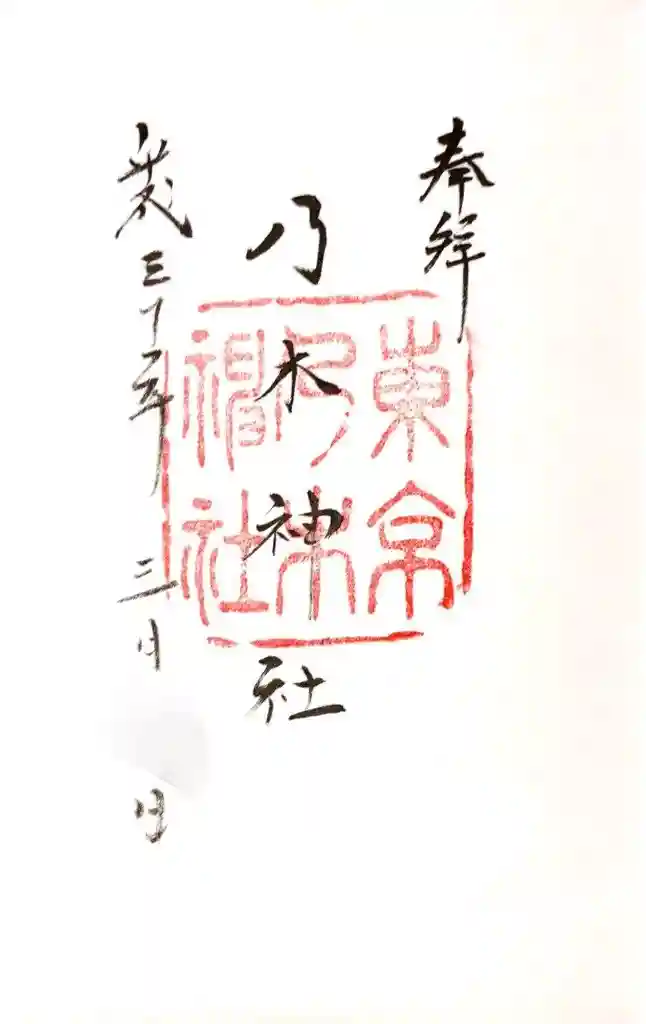 奉拝
乃木神社
平成三十年三月 日
東京
乃木
神社